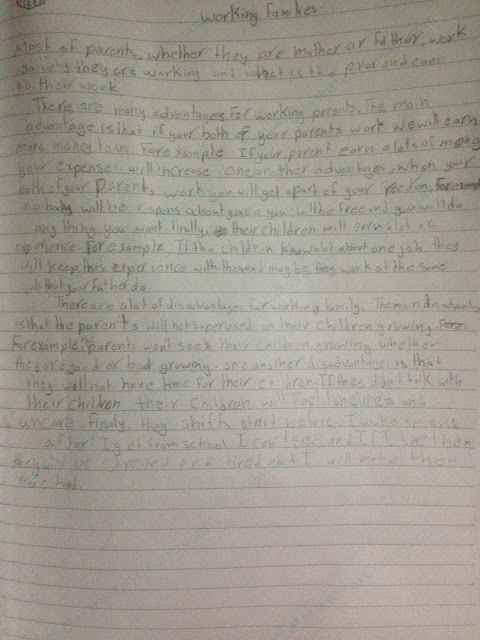 working Families.
Most of parents, whether they are mother or father, work
so why they are working and what is the pros and cons
to their work
There are many advantages for working parents. The main
advantage is that if your both of your parents work we will earn
more money to us. For example If your parent earn a lots of money
your expenses will increase. One another advantages, when your
both of your parents work you will get apart of your freedom. For example
no baby will be respons about you so you will be free and you will do
any thing you want. finally, their children will earn alot of
experience. For example, If the children know alot about one job they
will keep this experience with them and may be they work at the same
job that your father do.
There are alot of disadvantages for working family. The main disadvantag
is that the parents will not supervised on their children growing.
For example parents won't see their children growing whether
they are good or bad growing. one another disadvantage is that
they will not have time for their children. If they didn't talk with
their children their children will feel loneliness and
uncare. finaly, they shifts start before I wake up and
after I get from school I can't see and If I see them
they will be and tired and I will make them
more tired.